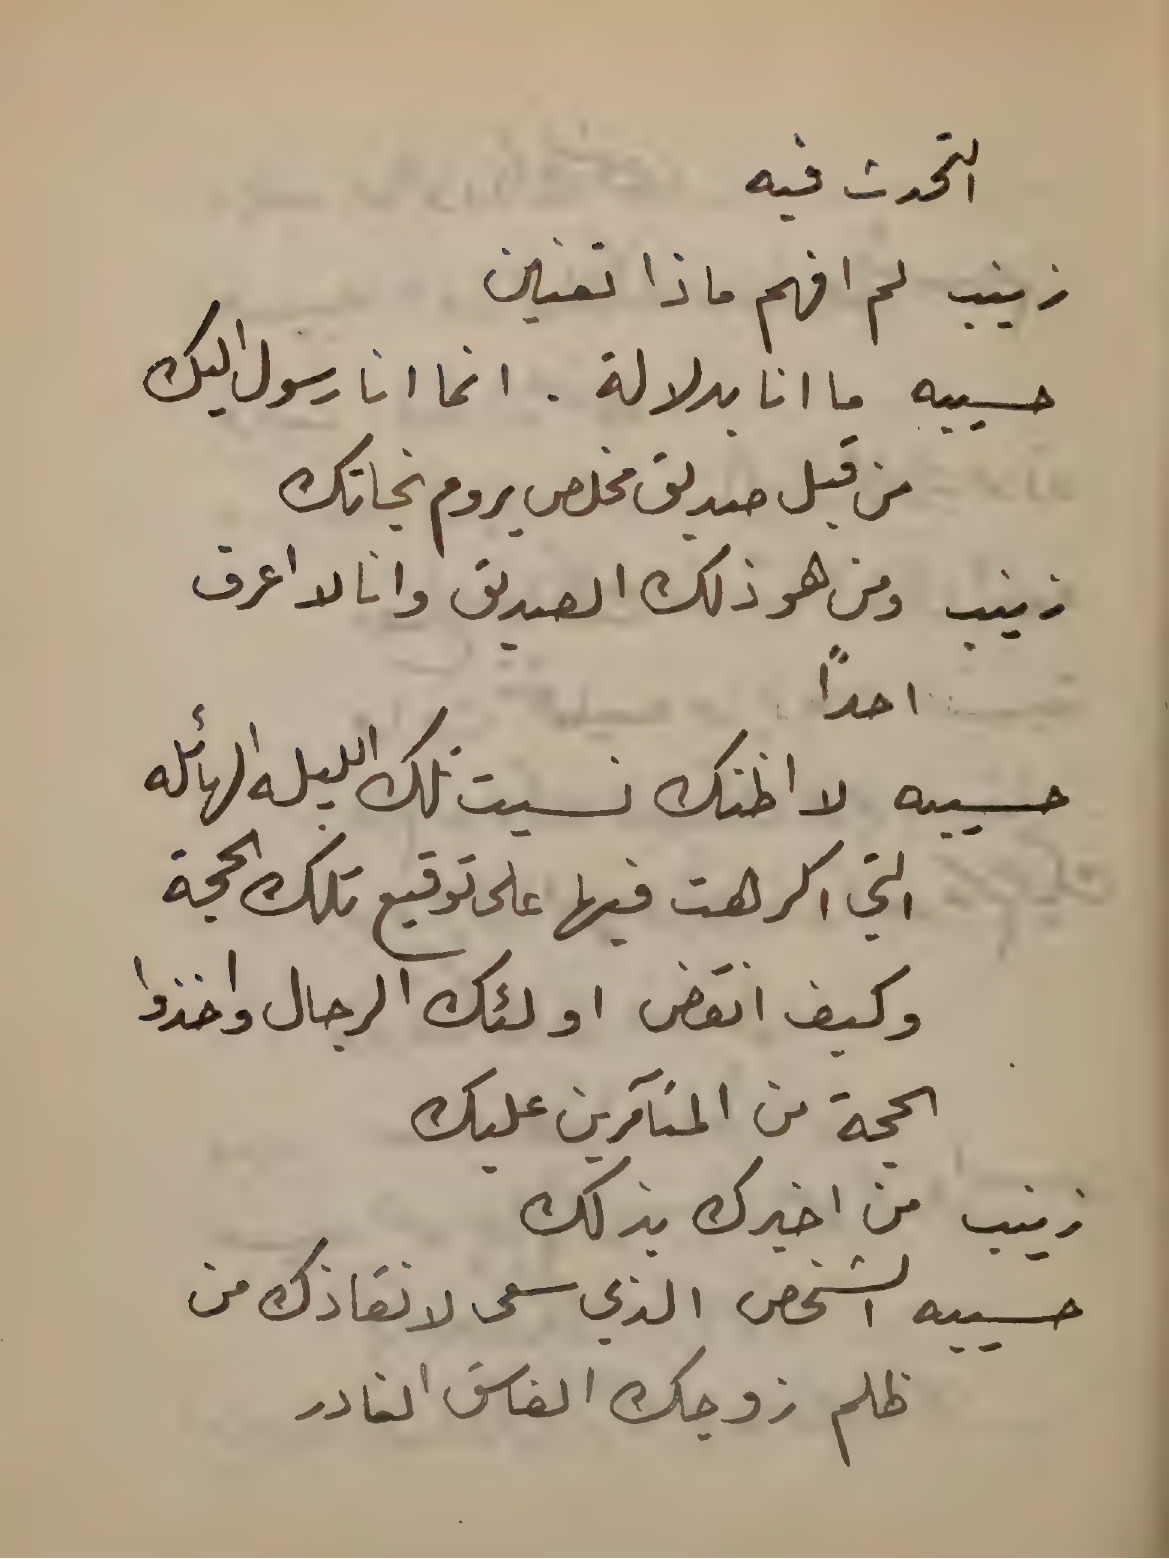 التحدث فيه
زينب لم افهم ماذا تعنين
حسيبه ما انا بدلالة . انما انا رسول اليك
من قبل صديق مخلص يروم نجاتك
زينب ومن هو ذلك الصديق وانا لا اعرف
احدًا
حسيبه لا اظنك نسيت تلك الليله الهائله
التي اكرهت فيها على توقيع تلك الحجة
وكيف انقض اولئك الرجال واخذوا
الحجة من المتآمرين عليك
زينب من اخبرك بذلك
حسيبه الشخص الذي سعى لانقاذك من
ظلم زوجك الفاسق الغادر